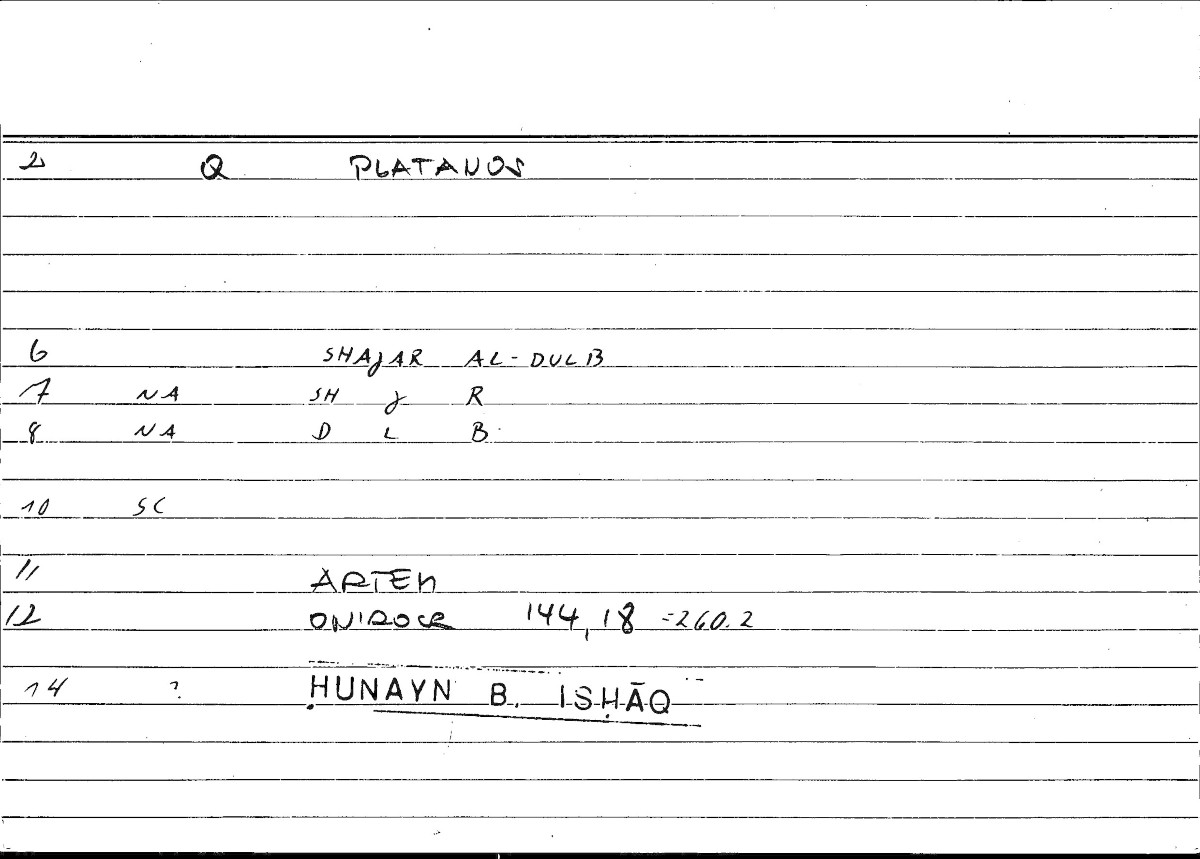 2 Q PLATANOS
6 SHAJAR AL-DULB
7 NA SH J R
8 NA D L B
10 SC
11 ARTEM
12 ONIROCR 144,18 =260.2
14 ? ḤUNAYN B. ISḤĀQ